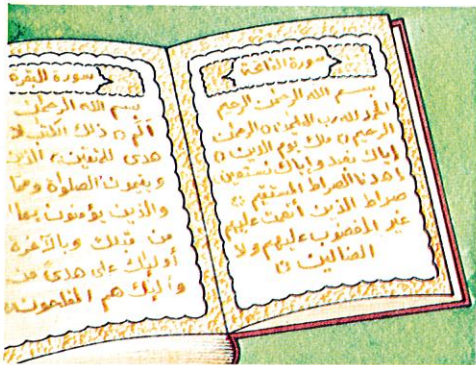 سورة الفاتحة
بسم الله الرحمن الرحيم
الحمد لله رب العلمين ۝ الرحمن
الرحيم ۝ ملك يوم الدين ۝
إياك نعبد وإياك نستعين
اهدنا الصراط المستقيم ۝
صراط الذين أنعمت عليهم
غير المغضوب عليهم ولا
الضالين ۝
سورة البقرة
بسم الله الرحمن
الم ۝ ذلك الكتب لا
هدى للمتقين ۝ الذين
ويقيمون الصلوة ومما
والذين يؤمنون بما
من قبلك وبالآخرة
أولئك على هدى من
وأولئك هم المفلحون